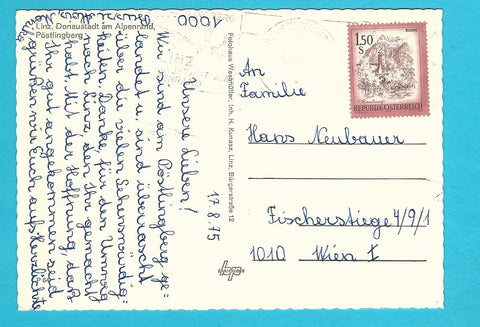 Linz, Donaustadt am Alpenrand,
Pöstlingberg
1000
Unsere Lieben!
17.8.75
Wir sind am Pöstlingberg ge=
landet u. sind überrascht
über die vielen Sehenswürdig=
keiten. Danke, für den Umweg
nach Linz den Ihr gemacht
habt. Mit der Hoffnung, daß
Ihr gut angekommen seid
grüßen wir Euch aufs Herzlichste
Fotohaus Westmüller, Inh. H. Kunasz, Linz, Bürgerstraße 12
1.50
S
REPUBLIK ÖSTERREICH
An
Familie
Hans Neubauer
Fischerstiege 4/9/1
1010 Wien I